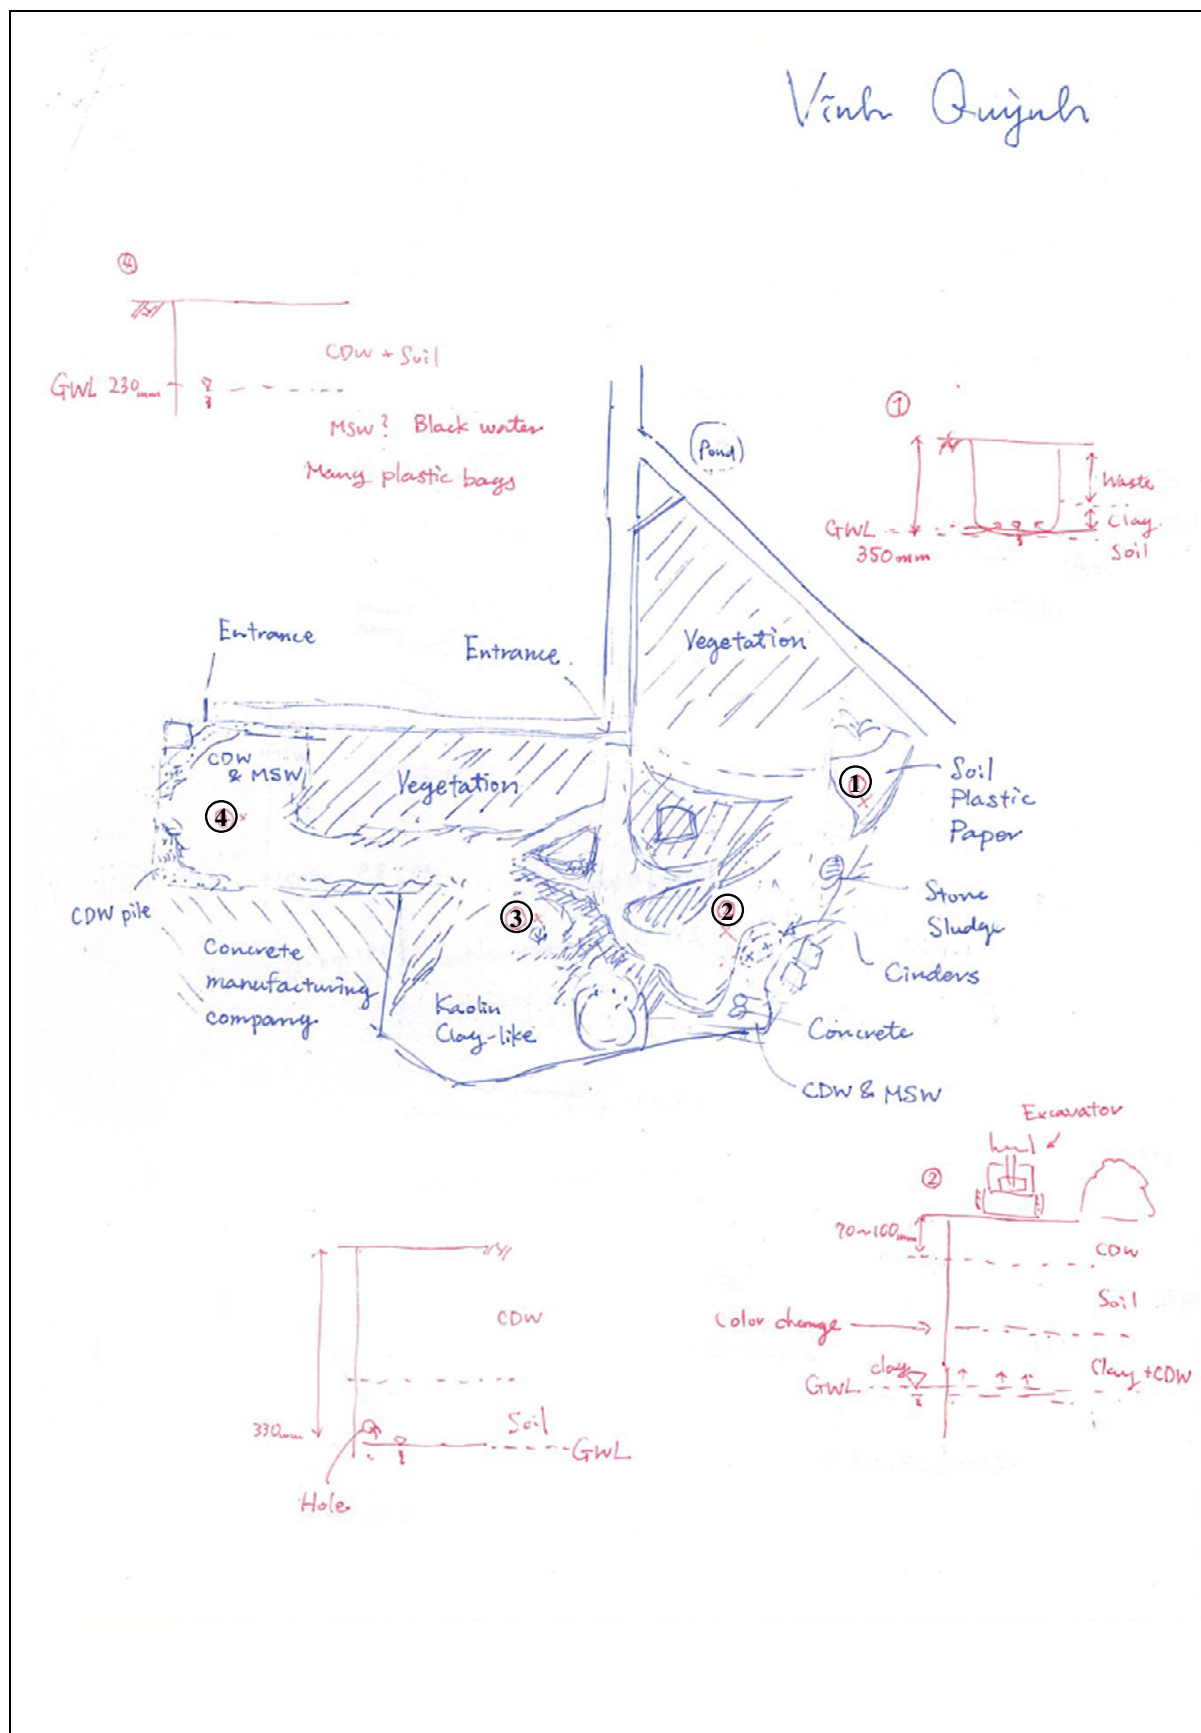 Vĩnh Quỳnh
④
CDW + Soil
GWL 230mm
MSW? Black water
Many plastic bags
①
Waste
Clay
Soil
GWL
350mm
Pond
Entrance
Entrance
Vegetation
CDW
& MSW
Vegetation
①
Soil
Plastic
Paper
④
③
②
Stone
Sludge
CDW pile
Concrete
manufacturing
company
Kaolin
Clay-like
Cinders
Concrete
CDW & MSW
Excavator
②
70~100mm
CDW
Soil
Color change
clay
Clay + CDW
GWL
CDW
330mm
Soil
GWL
Hole